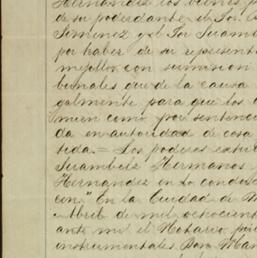 Hernández los bienes p
de su poderdante el Sor. 
Jimenez y el Sor Juamb
por haber de su represent
mejillo, con sumision
bunales que de la causa
galmente para que los
mien como por sentencia
da en autoridad de cosa
tida = Los poderes exhi
Juambelz Hermanos
Hernandez en lo conduc
cen" En la Ciudad de
Abril de mil ochocient
ante mi el Notario pú
instrumentales Don Man